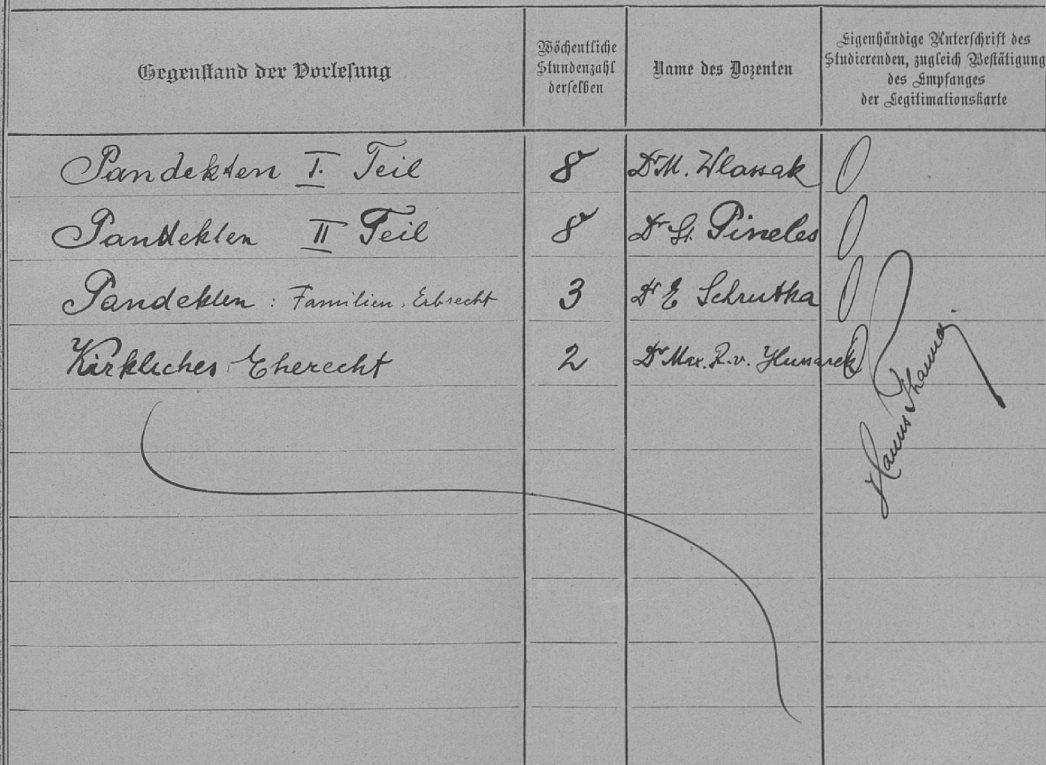 Gegenstand der Vorlesung
Wöchentliche
Stundenzahl
derselben
Name des Dozenten
Eigenhändige Unterschrift des
Studierenden, zugleich Bestätigung
des Empfanges
der Legitimationskarte
Pandekten I. Teil 8 Dr M. Wlassak
Pandekten II Teil 8 Dr St. Pineles
Pandekten : Familien. Erbrecht 3 Dr E Schrutka
Kirkliches Eherecht 2 Dr Max. R. v. Hussarek
Hanns